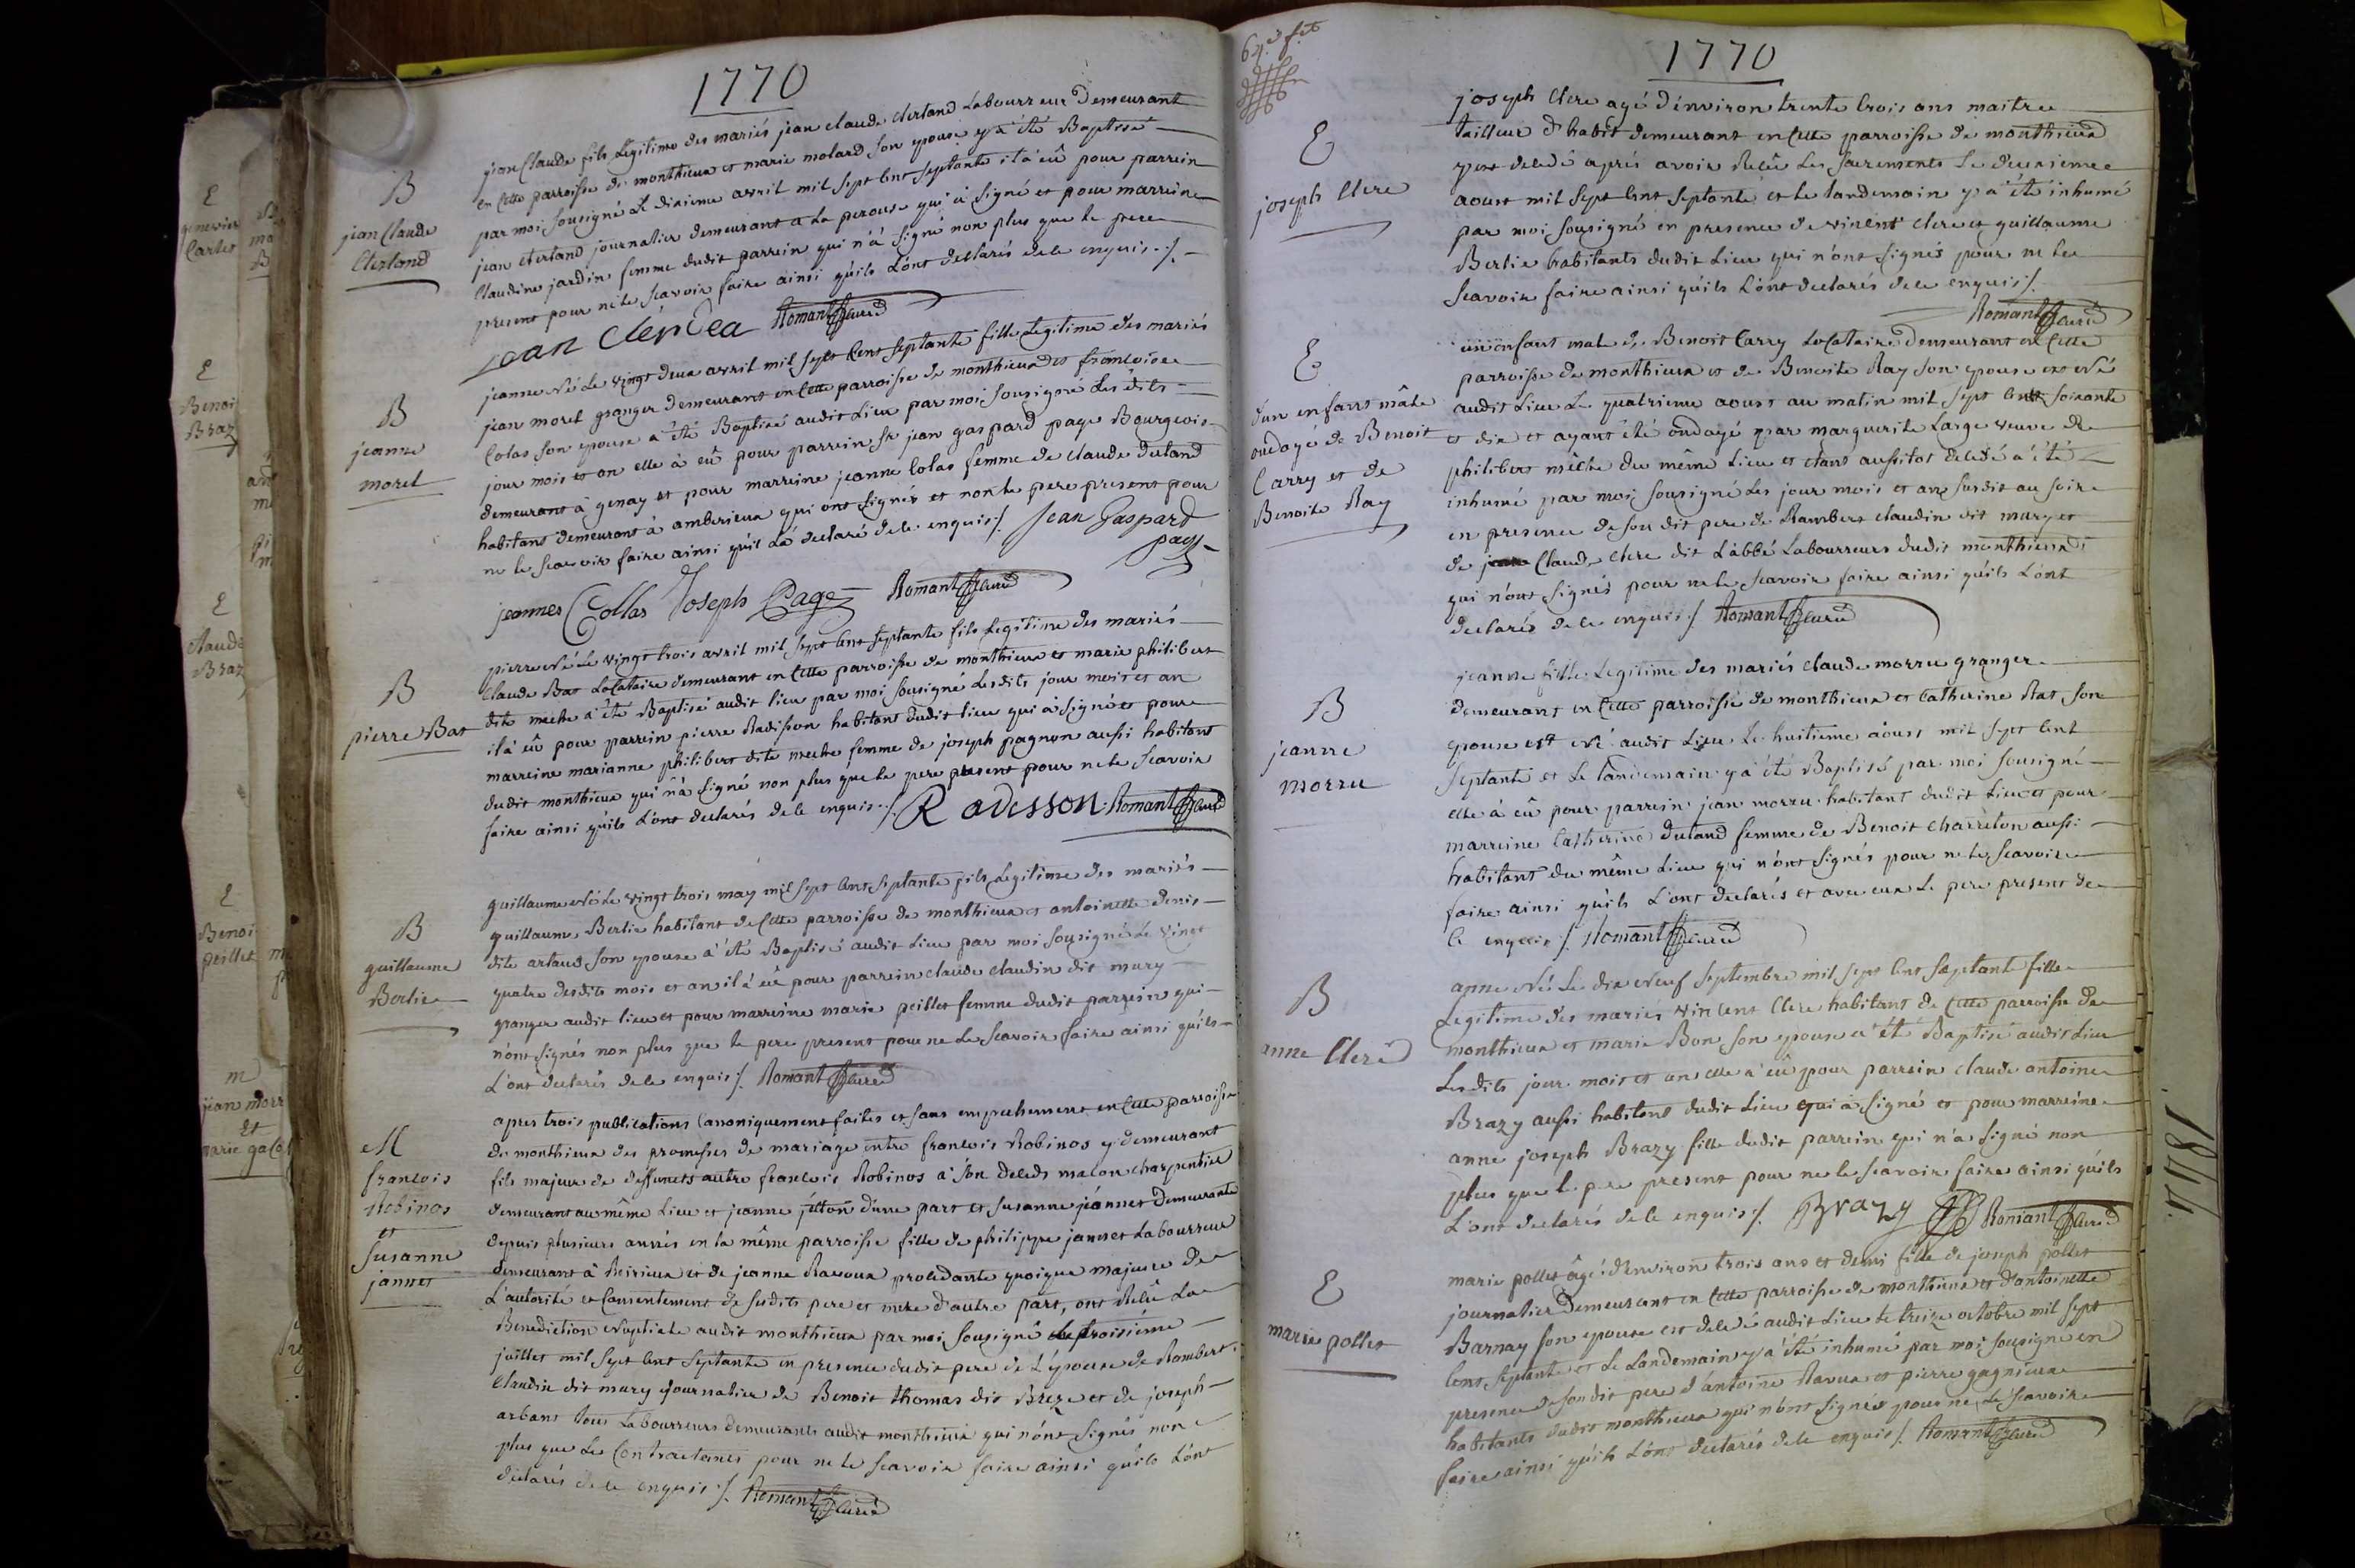 1770
B
jean Claude
Clerland
jean Claude fils Legitime des mariés jean claude clerland Labourreur Demeurant
en Cette parroisse de monthieux et marie molard son epouse y a été Baptisé
par moi sousigné Le dixieme avril mil sept Cent septante il a eû pour parrein
jean clerland journalier demeurant a La perouse qui a signé et pour marreine
Claudine jardin femme dudit parrein qui n'a signé non plus que le pere
present pour ne le scavoir faire ainsi qu'ils L'ont declarés de ce enquis ./.
jean Romant Curé
B
jeanne
morel
jeanne Né Le vingt deux avril mil sept Cent septante fille Legitime des mariés
jean morel granger demeurant en Cette parroisse de monthieux et francoise
Colas son epouse a été Baptisé audit Lieu par moi sousigné Les dits
jour mois et an elle à eû pour parrein sr jean gaspard page Bourgeois
demeurant à genay et pour marreine jeanne Colas femme de claude dutand
habitant demeurant à amberieux qui ont signés et non le pere present pour
ne le scavoir faire ainsi qu'il L'a declaré de ce enquis ./. jean Gaspard
page
jeannes Collas Joseph Page Romant Curé
B
pierre Bas
pierre Né Le vingt trois avril mil sept Cent septante fils Legitime des mariés
Claude Bas Locataire demeurant en Cette parroisse de monthieux et marie philibert
dite meche a été Baptisé audit lieu par moi sousigné Lesdits jour mois et an
il a eû pour parrein pierre Radisson habitant dudit lieu qui a signé et pour
marreine marianne philibert dite meche femme de joseph pagnon aussi habitant
dudit monthieux qui n'a signé non plus que le pere present pour ne le scavoir
faire ainsi qu'ils L'ont declarés de ce enquis ./. Radisson Romant Curé
B
guillaume
Berlie
guillaume Né Le vingt trois may mil sept Cent septante fils Legitime des mariés
guillaume Berlie habitant de Cette parroisse de monthieux et antoinette denis
dite artaud son epouse a été Baptisé audit Lieu par moi sousigné Le vingt
quatre desdits mois et an il a eû pour parrein claude claudin dit mury
granger audit lieu et pour marreine marie peillet femme dudit parrein qui
n'ont signés non plus que le pere present pour ne Le scavoir faire ainsi qu'ils
L'ont declarés de ce enquis ./. Romant Curé
M
francois
Robinos
et
susanne
jannet
apres trois publications Canoniquement faites et sans empechement en Cette parroisse
de monthieux des promesses de mariage entre francois Robinos y demeurant
fils majeur de deffunts autre francois Robinos a son deceds macon charpentier
demeurant au même Lieu et jeanne d'une part et susanne jeannet demeurante
depuis plusieurs années en la même parroisse fille de philippe jannet Labourreur
demeurant à Reirieux et de jeanne Ravoux procedante quoique majeure de
L'autorité et Consentement de susdits pere et mere d'autre part, ont Recû La
Benediction Nuptiale audit monthieux par moi sousigné Le troisième
juillet mil sept Cent septante en presence dudit pere de L'epouse de Rambert
Claudin dit mury journalier de Benoit thomas dit Breze et de joseph
arbant tous Labourreurs demeurants audit monthieux qui n'ont signés non
plus que Les Contractants pour ne le scavoir faire ainsi qu'ils L'ont
declarés de ce enquis ./. Romant Curé
1770
E
joseph Clerc
joseph Clerc agé d'environ trente trois ans maitre
tailleur d'habit demeurant en Cette parroisse de monthieux
y est decedé aprés avoir Recû Les sacrements Le deuxieme
aoust mil sept Cent septante et le landemain y a été inhumé
par moi sousigné en presence de vincent clerc et guillaume
Berlie habitants dudit Lieu qui n'ont signés pour ne le
scavoir faire ainsi qu'ils L'ont declarés de ce enquis ./.
Romant Curé
E
d'un enfant mâle
ondoyé de Benoit
Carry et de
Benoite Ray
un enfant male de Benoit Carry Locataire Demeurant en Cette
parroisse de monthieux et de Benoite Ray son epouse est Né
audit Lieu Le quatrieme aoust au matin mil sept Cent soixante
et dix et ayant été ondoyé par marguerite Large veuve de
philibert mêche du même Lieu et etant aussitot decedé a été
inhumé par moi sousigné Les jour mois et an susdit au soir
en presence de son dit pere de Rambert claudin dit mury et
de Claude clerc dit L'abbé Labourreurs dudit monthieux
qui n'ont signés pour ne le scavoir faire ainsi qu'ils L'ont
declarés de ce enquis ./. Romant Curé
B
jeanne
morru
jeanne fille Legitime des mariés claude morru granger
demeurant en Cette parroisse de monthieux et Catherine Bas son
epouse est Né audit Lieu Le huitieme aoust mil sept Cent
septante et Le landemain y a été Baptisé par moi sousigné
elle à eû pour parrein jean morru habitant dudit Lieu et pour
marreine Catherine dutand femme de Benoit charreton aussi
habitant du même Lieu qui n'ont signés pour ne le scavoir
faire ainsi qu'ils L'ont declarés et avec eux Le pere present de
ce enquis ./. Romant Curé
B
anne Clerc
anne Né Le dix Neuf septembre mil sept Cent septante fille
Legitime des mariés vincent Clerc habitant de Cette parroisse de
monthieux et marie Bon son epouse a été Baptisé audit Lieu
Lesdits jour mois et an elle a eû pour parrein claude antoine
Brazy aussi habitant dudit Lieu qui a signé et pour marreine
anne joseph Brazy fille dudit parrein qui n'a signé non
plus que le pere present pour ne le scavoir faire ainsi qu'ils
L'ont declarés de ce enquis ./. Brazy Romant Curé
E
marie pollet
marie pollet âgé d'environ trois ans et demi fille de joseph pollet
journalier Demeurant en Cette parroisse de monthieux et d'antoinette
Barnay son epouse est decedé audit Lieu Le treize octobre mil sept
Cent septante et Le Landemain y a été inhumé par moi sousigné en
presence de son dit pere d'antoine Ravux et pierre gagnieux
habitants dudit monthieux qui n'ont signés pour ne Le scavoir
faire ainsi qu'ils L'ont declarés de ce enquis ./. Romant Curé